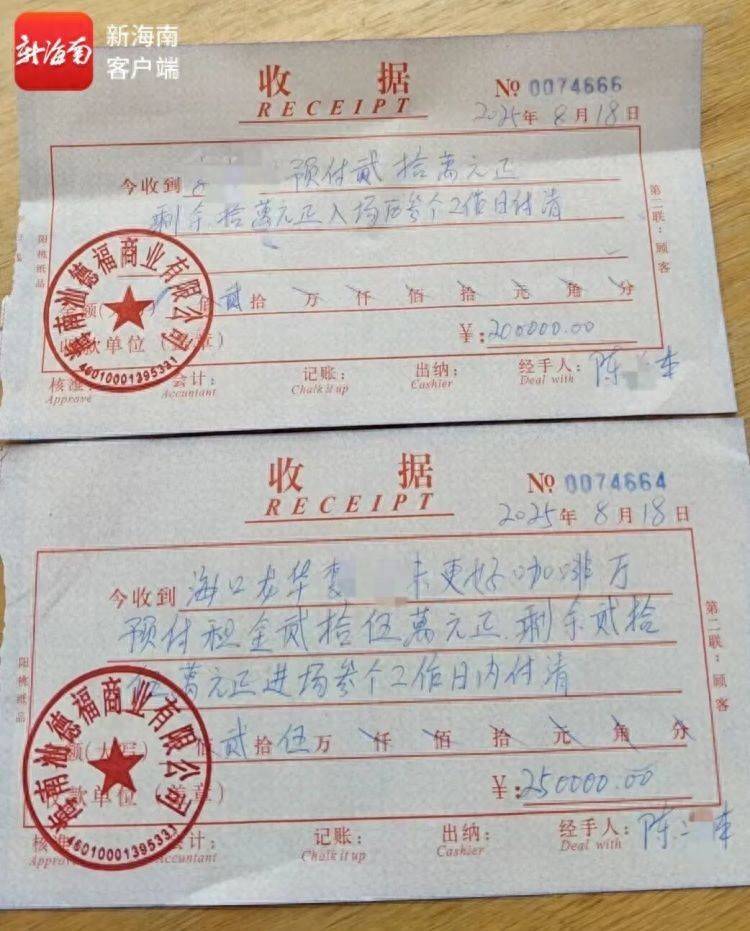 新海南
新海南
客户端
收 据
RECEIPT
№ 0074666
2025年 8月18日
今收到 预付贰拾萬元正
剩余拾萬元正入场后叁个工作日付清
佰贰拾万仟佰拾元角分
¥:200000.00
收款单位(盖章)
海南汕德福商业有限公司
46010001395331
核准:
Approve
会计:
Accountant
记账:
Chalk it up
出纳:
Cashier
经手人:陈
Deal with
第二联:顾客
阳桃纸品
收 据
RECEIPT
№ 0074664
2025年 8月18日
今收到 海口龙华李 未更好咖啡厅
预付租金贰拾伍萬元正.剩余贰拾
伍萬元正进场叁个工作日内付清
金额(大写) 佰贰拾伍万仟佰拾元角分
¥:250000.00
收款单位(盖章)
海南汕德福商业有限公司
46010001395331
核准:
Approve
会计:
Accountant
记账:
Chalk it up
出纳:
Cashier
经手人:陈
Deal with
第二联:顾客
阳桃纸品